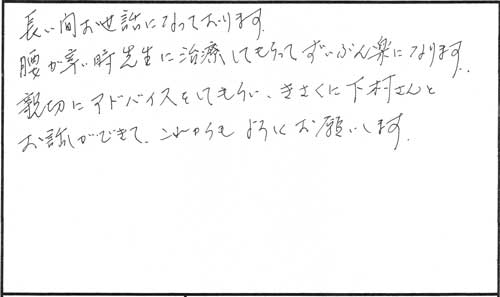 長い間お世話になっております。
腰が辛い時先生に治療してもらってずいぶん楽になります。
親切にアドバイスをしてもらい、きさくに下村さんと
お話しができて、これからもよろしくお願いします。